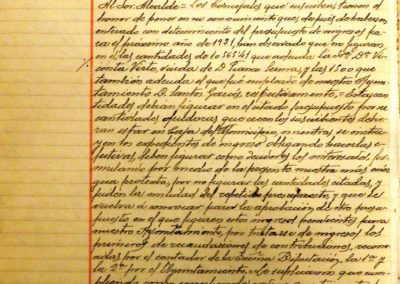 Al Sor. Alcalde = Los Concejales que suscriben tienen el
honor de poner en su conocimiento que, después de haberse
enterado con detenimiento del presupuesto de ingresos pa-
ra el proximo año de 1931, han observado que no figuran
en él, las cantidades de 10.565'41 que adeuda la Sra. Dª Vi-
centa Verte, viuda de D. Franco y los 1.500 que
también adeuda el que fué empleado de nuestro Ayun-
tamiento D. Santos respectivamente = Estas can-
tidades debían figurar en el citado presupuesto por ser
cantidades deudoras que a los suscribientes debie-
ran estar en Caja del Municipio, mientras se instru-
yen los expedientes de ingreso obligando hacerlas e-
fectivas, deben figurar como deudores los interesados for-
mulando por medio de la presente nuestra más enér-
gica protesta, por no figurar las cantidades citadas, y
piden la anulación de repetido presupuesto y que se
vuelva a convocar para la aprobación de otro presu-
puesto en el que figuren estos ingresos pendientes para
nuestro Ayuntamiento, por tratarse de ingresos los
primeros de recaudaciones de contribuciones, recono-
cidas por el contador de la Excma. Diputación, la 1ª y
la 2ª por el Ayuntamiento. = Le suplicamos que cum-